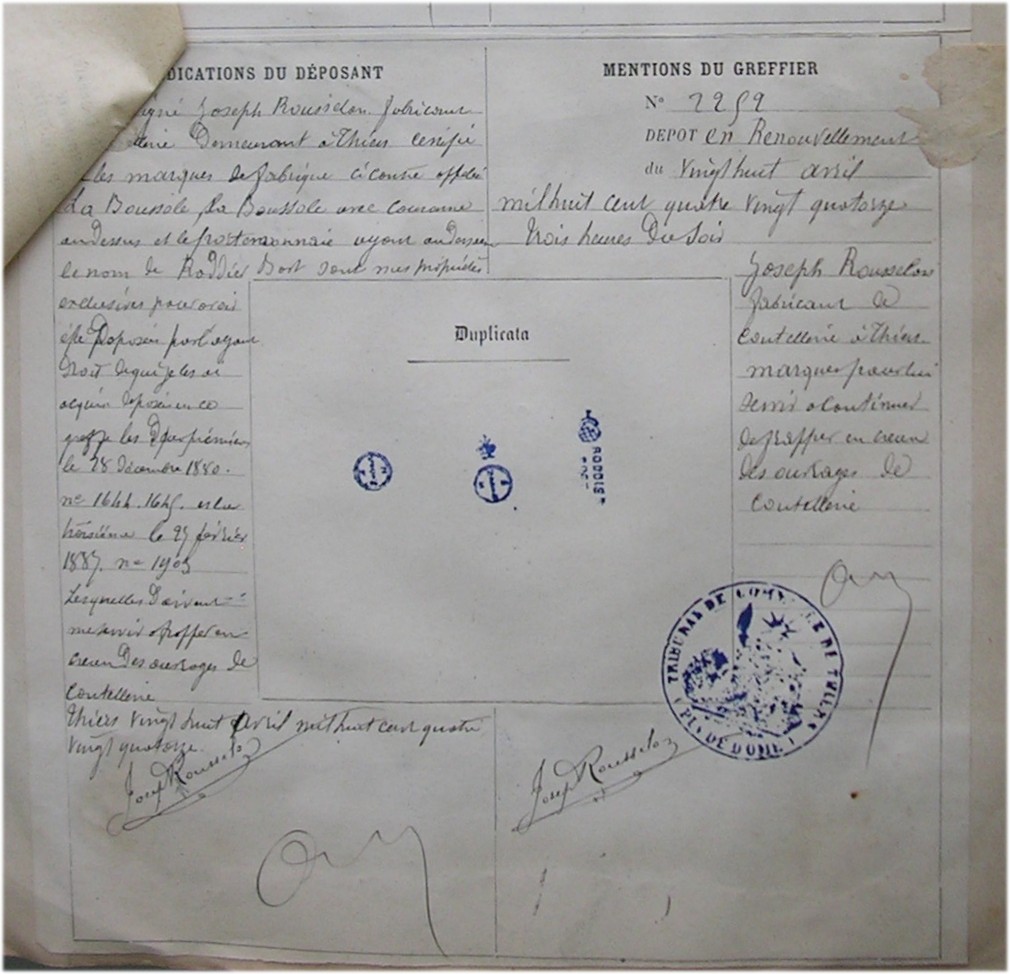 DICATIONS DU DÉPOSANT
Joseph Rousselon fabricant
Demeurant à Thiers certifie
les marques de fabrique ci contre
La Boussole La Boussole avec couronne
au dessus et le porte monnaie ayant au dessus
le nom de Roddier sont mes propriétés
exclusives pour avoir
été Déposées par l'ayant
Droit de qui je les ai
acquis déposées en ce
greffe les Deux premières
le 28 décembre 1880.
no 1644. 1645. et la
troisième le 25 février
1887. no 1903
Lesquelles Doivent
me servir à frapper en
creux Des ouvrages de
Coutellerie
Thiers vingt huit avril mil huit cent quatre
vingt quatorze.
Josep Rousselon
MENTIONS DU GREFFIER
No 2259
DEPOT en Renouvellement
du vingt huit avril
mil huit cent quatre vingt quatorze
trois heures Du soir
Joseph Rousselon
fabricant de
Coutellerie à Thiers
marques pour lui
servir à continuer
de frapper en creux
des ouvrages de
Coutellerie
Duplicata
TRIBUNAL DE COMMERCE DE THIERS
(PUY DE DOME)
Josep Rousselon